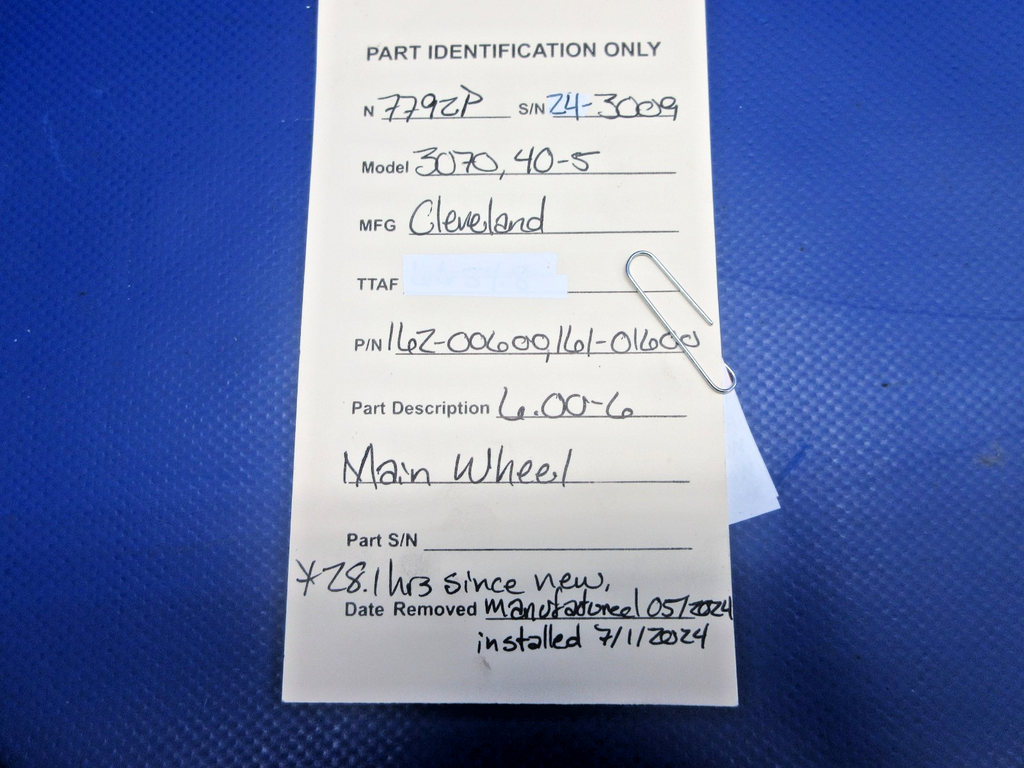 PART IDENTIFICATION ONLY
N 7792P S/N 24-3009
Model 3070, 40-5
MFG Cleveland
TTAF
P/N 162-00600, 161-01600
Part Description 6.00-6
Main Wheel
Part S/N
*28.1 hrs since new,
Date Removed manufactured 05/2024
installed 7/1/2024